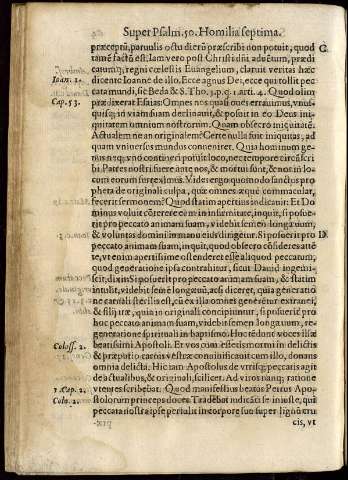 Super Psalm. 50. Homilia septima.
præcepti, paruulis octo dierū præscribi non potuit, quod
C
tamē factū est. Iam vero post Christi dñi aduētum, prædi
catumq; regni cœlestis Euangelium, claruit veritas hæc
Ioan. 1.
dicente Ioanne de illo. Ecce agnus Dei, ecce qui tollit pec
cata mundi, sic Beda & S. Tho. 3. p. q. 1. arti. 4. Quod olim
Cap. 53.
prædixerat Esaias: Omnes nos quasi oues errauimus, vnus
quisq; in viam suam declinauit, & posuit in eo Deus ini
quitatem omnium nostrorum. Quam obsecro iniquitatē?
Actualem ne an originalem? Certe nulla fuit iniquitas, ad
quam vniuersus mundus conueniret. Quia hominum ge-
nus neq; vno contineri potuit loco, nec tempore circūscri
bi. Patres nostri fuere ante nos, & mortui sunt, & nos in lo-
cum eorum surreximus. Vides ergo quomodo sanctus pro
pheta de originali culpa, quæ omnes æque commaculat,
fecerit sermonem? Quod statim apertius indicauit: Et Do
minus voluit cōterere eum in infirmitate, inquit, si posue-
rit pro peccato animam suam, videbit semen longæuum,
& voluntas domini in manu eius dirigetur. Si posuerit pro
D
peccato animam suam, inquit, quod obsecro cōsideres attē
te, vt enim apertissime ostenderet esse aliquod peccatum,
quod generatione ipsa contrahitur, sicut Dauid ingemi-
scit, dixit: Si posuerit pro peccato animam suam, & statim
intulit, videbit semē longæuū, acsi diceret, quia generatio
ne carnali sterilis est, cū ex illa omnes generētur extranei,
& filij iræ, quia in originali concipiuntur, si posuerit pro
hoc peccato animam suam, videbit semen longæuum, re-
generatione spirituali in baptismo. Hoc tēdunt voces illæ
Coloss. 2.
beatissimi Apostoli. Et vos cum essetis mortui in delictis
& præputio carnis vestræ conuiuificauit cum illo, donans
omnia delicta. Hic iam Apostolus de vtrisq; peccatis agit
de actualibus, & originali, scilicet. Ad viros nanq; ratione
1. Cap. 2.
vtentes scribebat. Quod manifestius beatus Petrus Apo-
Colo. 2.
stolorum princeps docet. Tradebat iudicāti se iniuste, qui
peccata nostra ipse pertulit in corpore suo super lignū: cru
cis, vt